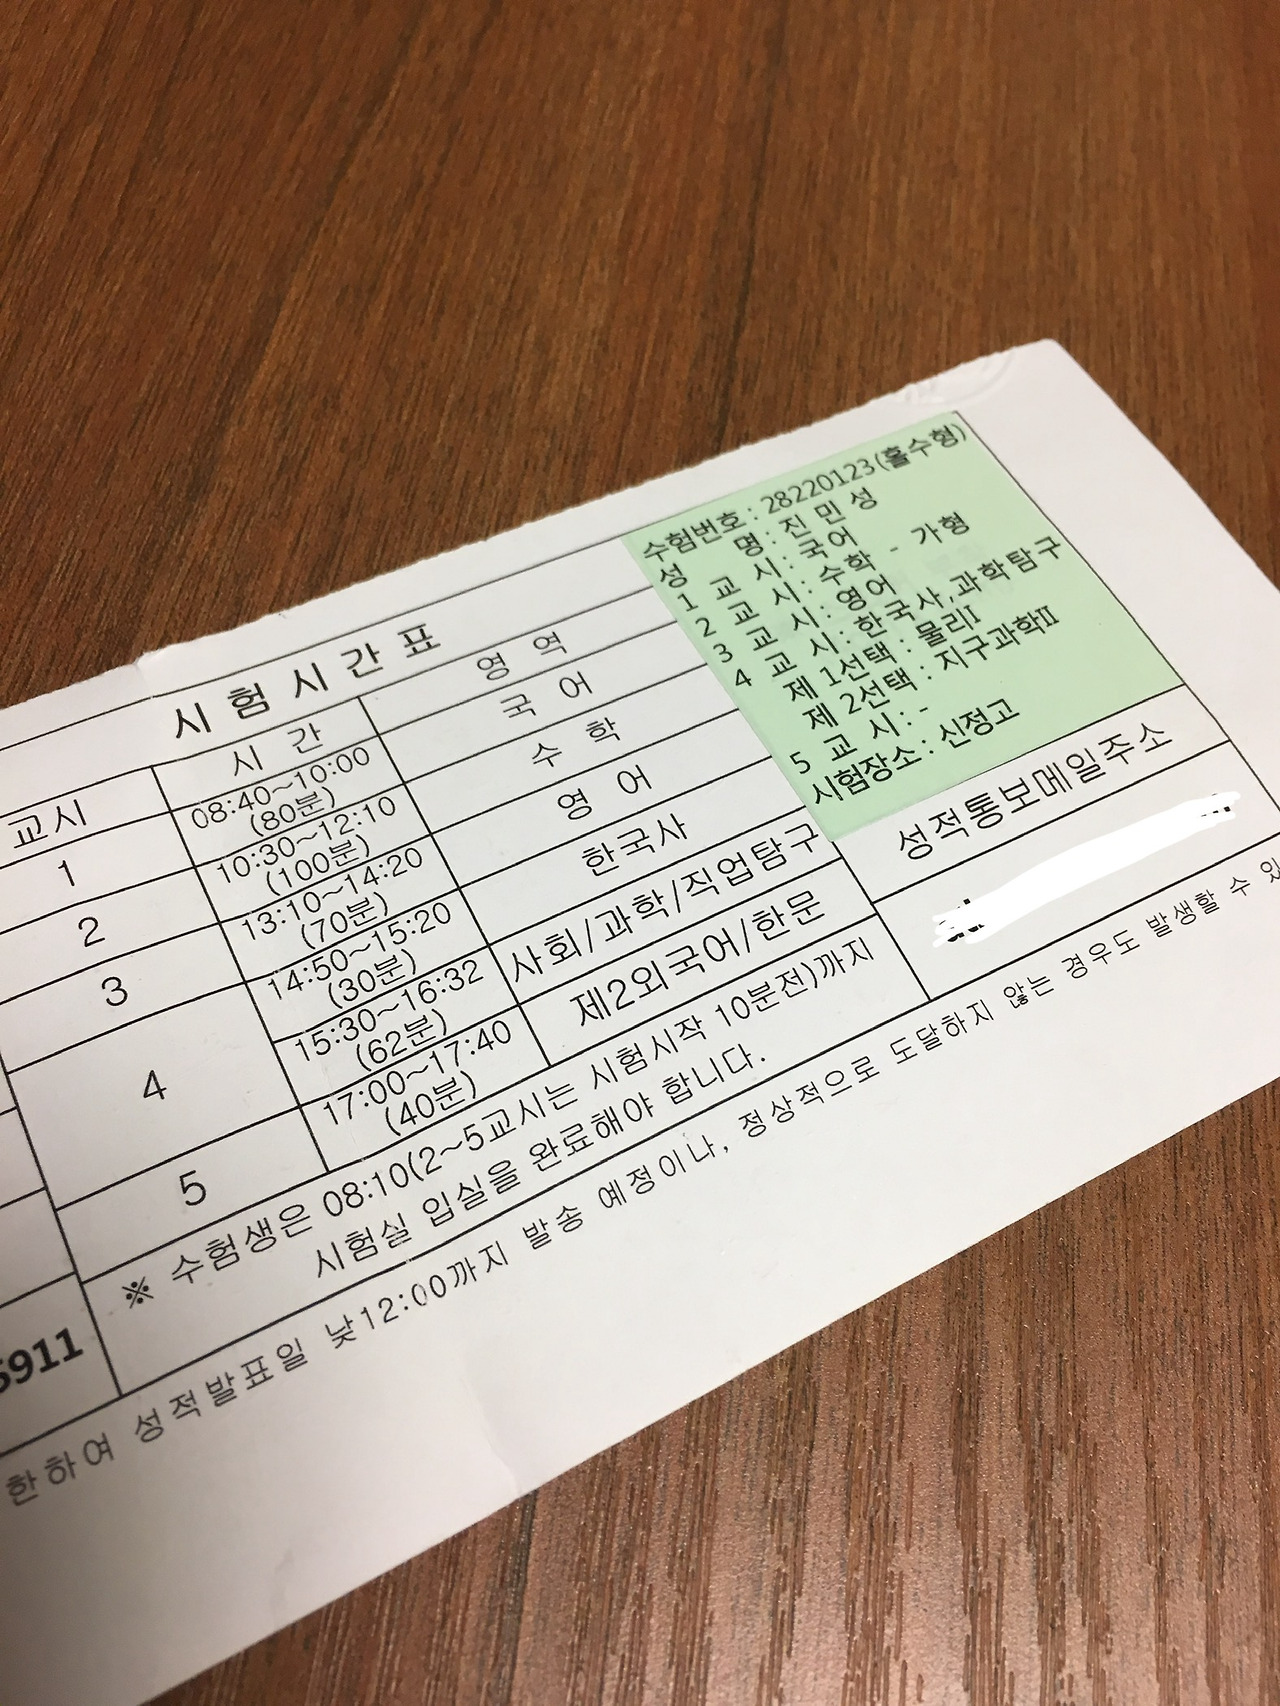 시험시간표
교시 시간 영역
1 08:40~10:00 (80분) 국어
2 10:30~12:10 (100분) 수학
3 13:10~14:20 (70분) 영어
4 14:50~15:20 (30분) 한국사
15:30~16:32 (62분) 사회/과학/직업탐구
5 17:00~17:40 (40분) 제2외국어/한문
※ 수험생은 08:10(2~5교시는 시험시작 10분전)까지
시험실 입실을 완료해야 합니다.
수험번호 : 28220123(홀수형)
성 명 : 진민성
1 교 시 : 국어
2 교 시 : 수학 - 가형
3 교 시 : 영어
4 교 시 : 한국사,과학탐구
제 1선택 : 물리Ⅰ
제 2선택 : 지구과학Ⅱ
5 교 시 : -
시험장소 : 신정고
성적통보메일주소
5911
한하여 성적발표일 낮12:00까지 발송 예정이나, 정상적으로 도달하지 않는 경우도 발생할 수 있